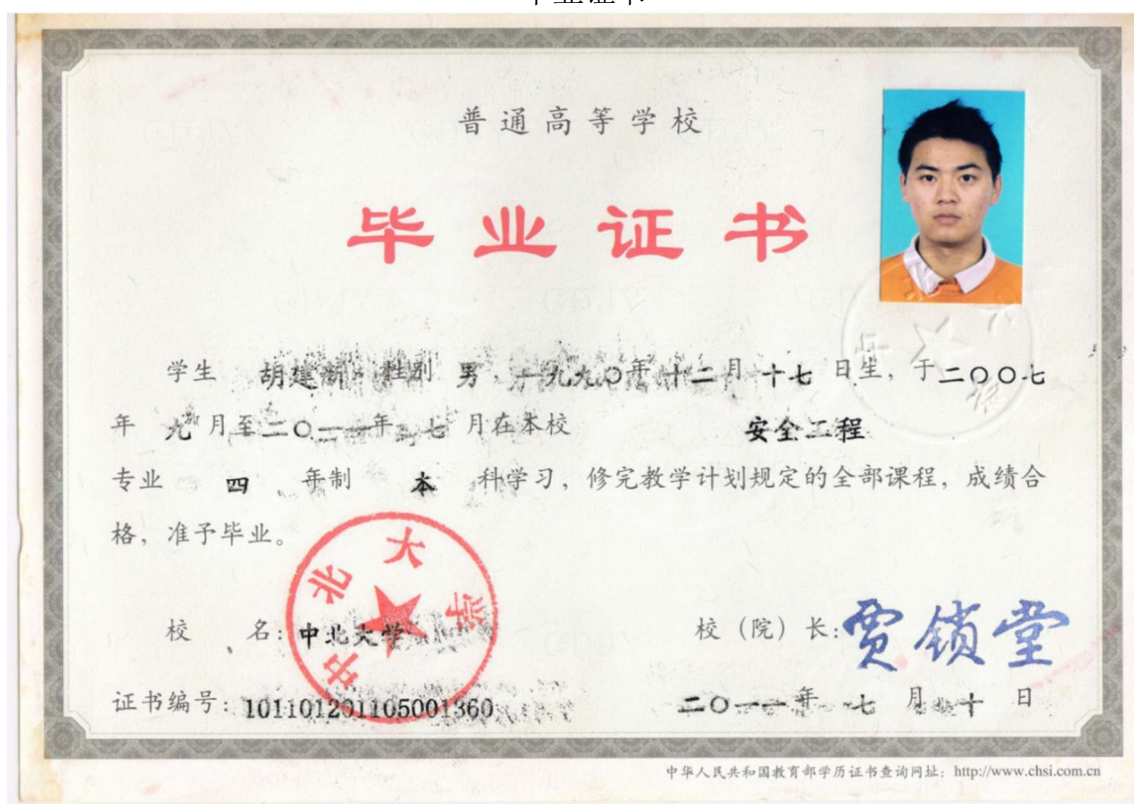 毕业证书
普通高等学校
毕业证书
学生 胡建新 性别 男，一九九〇年十二月十七日生，于二〇〇七
年九月至二〇一一年七月在本校 安全工程
专业 四 年制 本 科学习，修完教学计划规定的全部课程，成绩合
格，准予毕业。
中北大学
校 名：中北大学
校（院）长：贾锁堂
证书编号：101101201105001360
二〇一一年七月十日
中华人民共和国教育部学历证书查询网址：http://www.chsi.com.cn